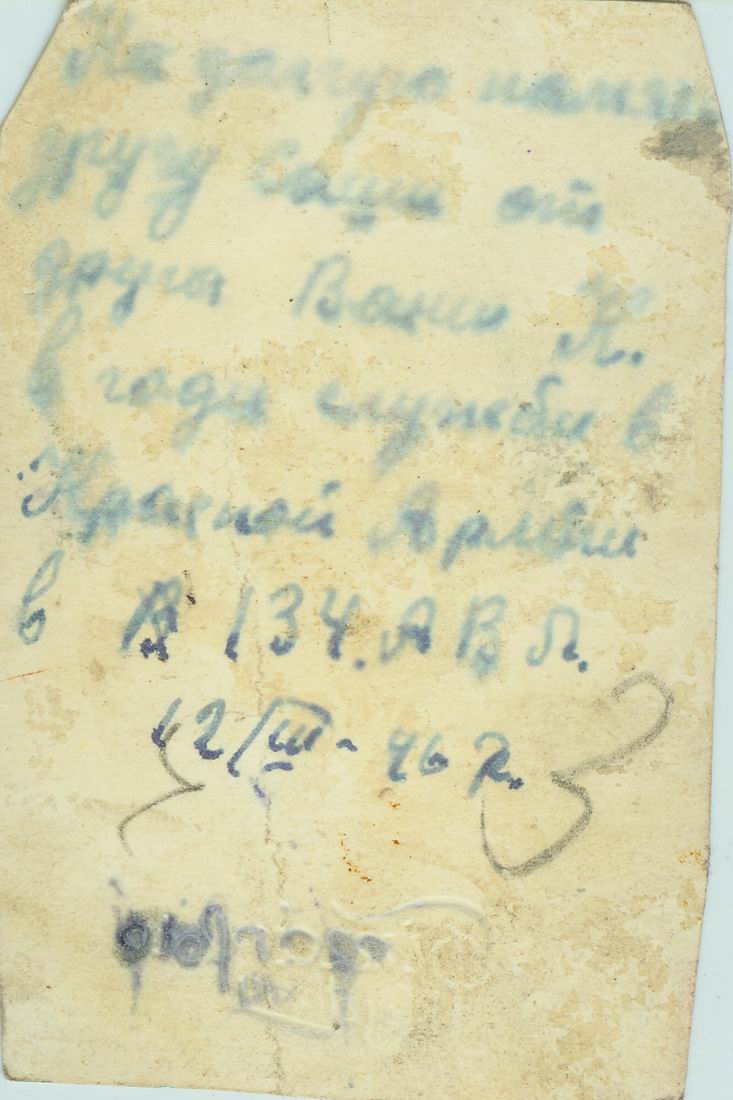 На долгую память
другу Саши от
друга Вани К.
в годы службы в
Красной Армии
в 134. А В П.
12/III - 46 г.